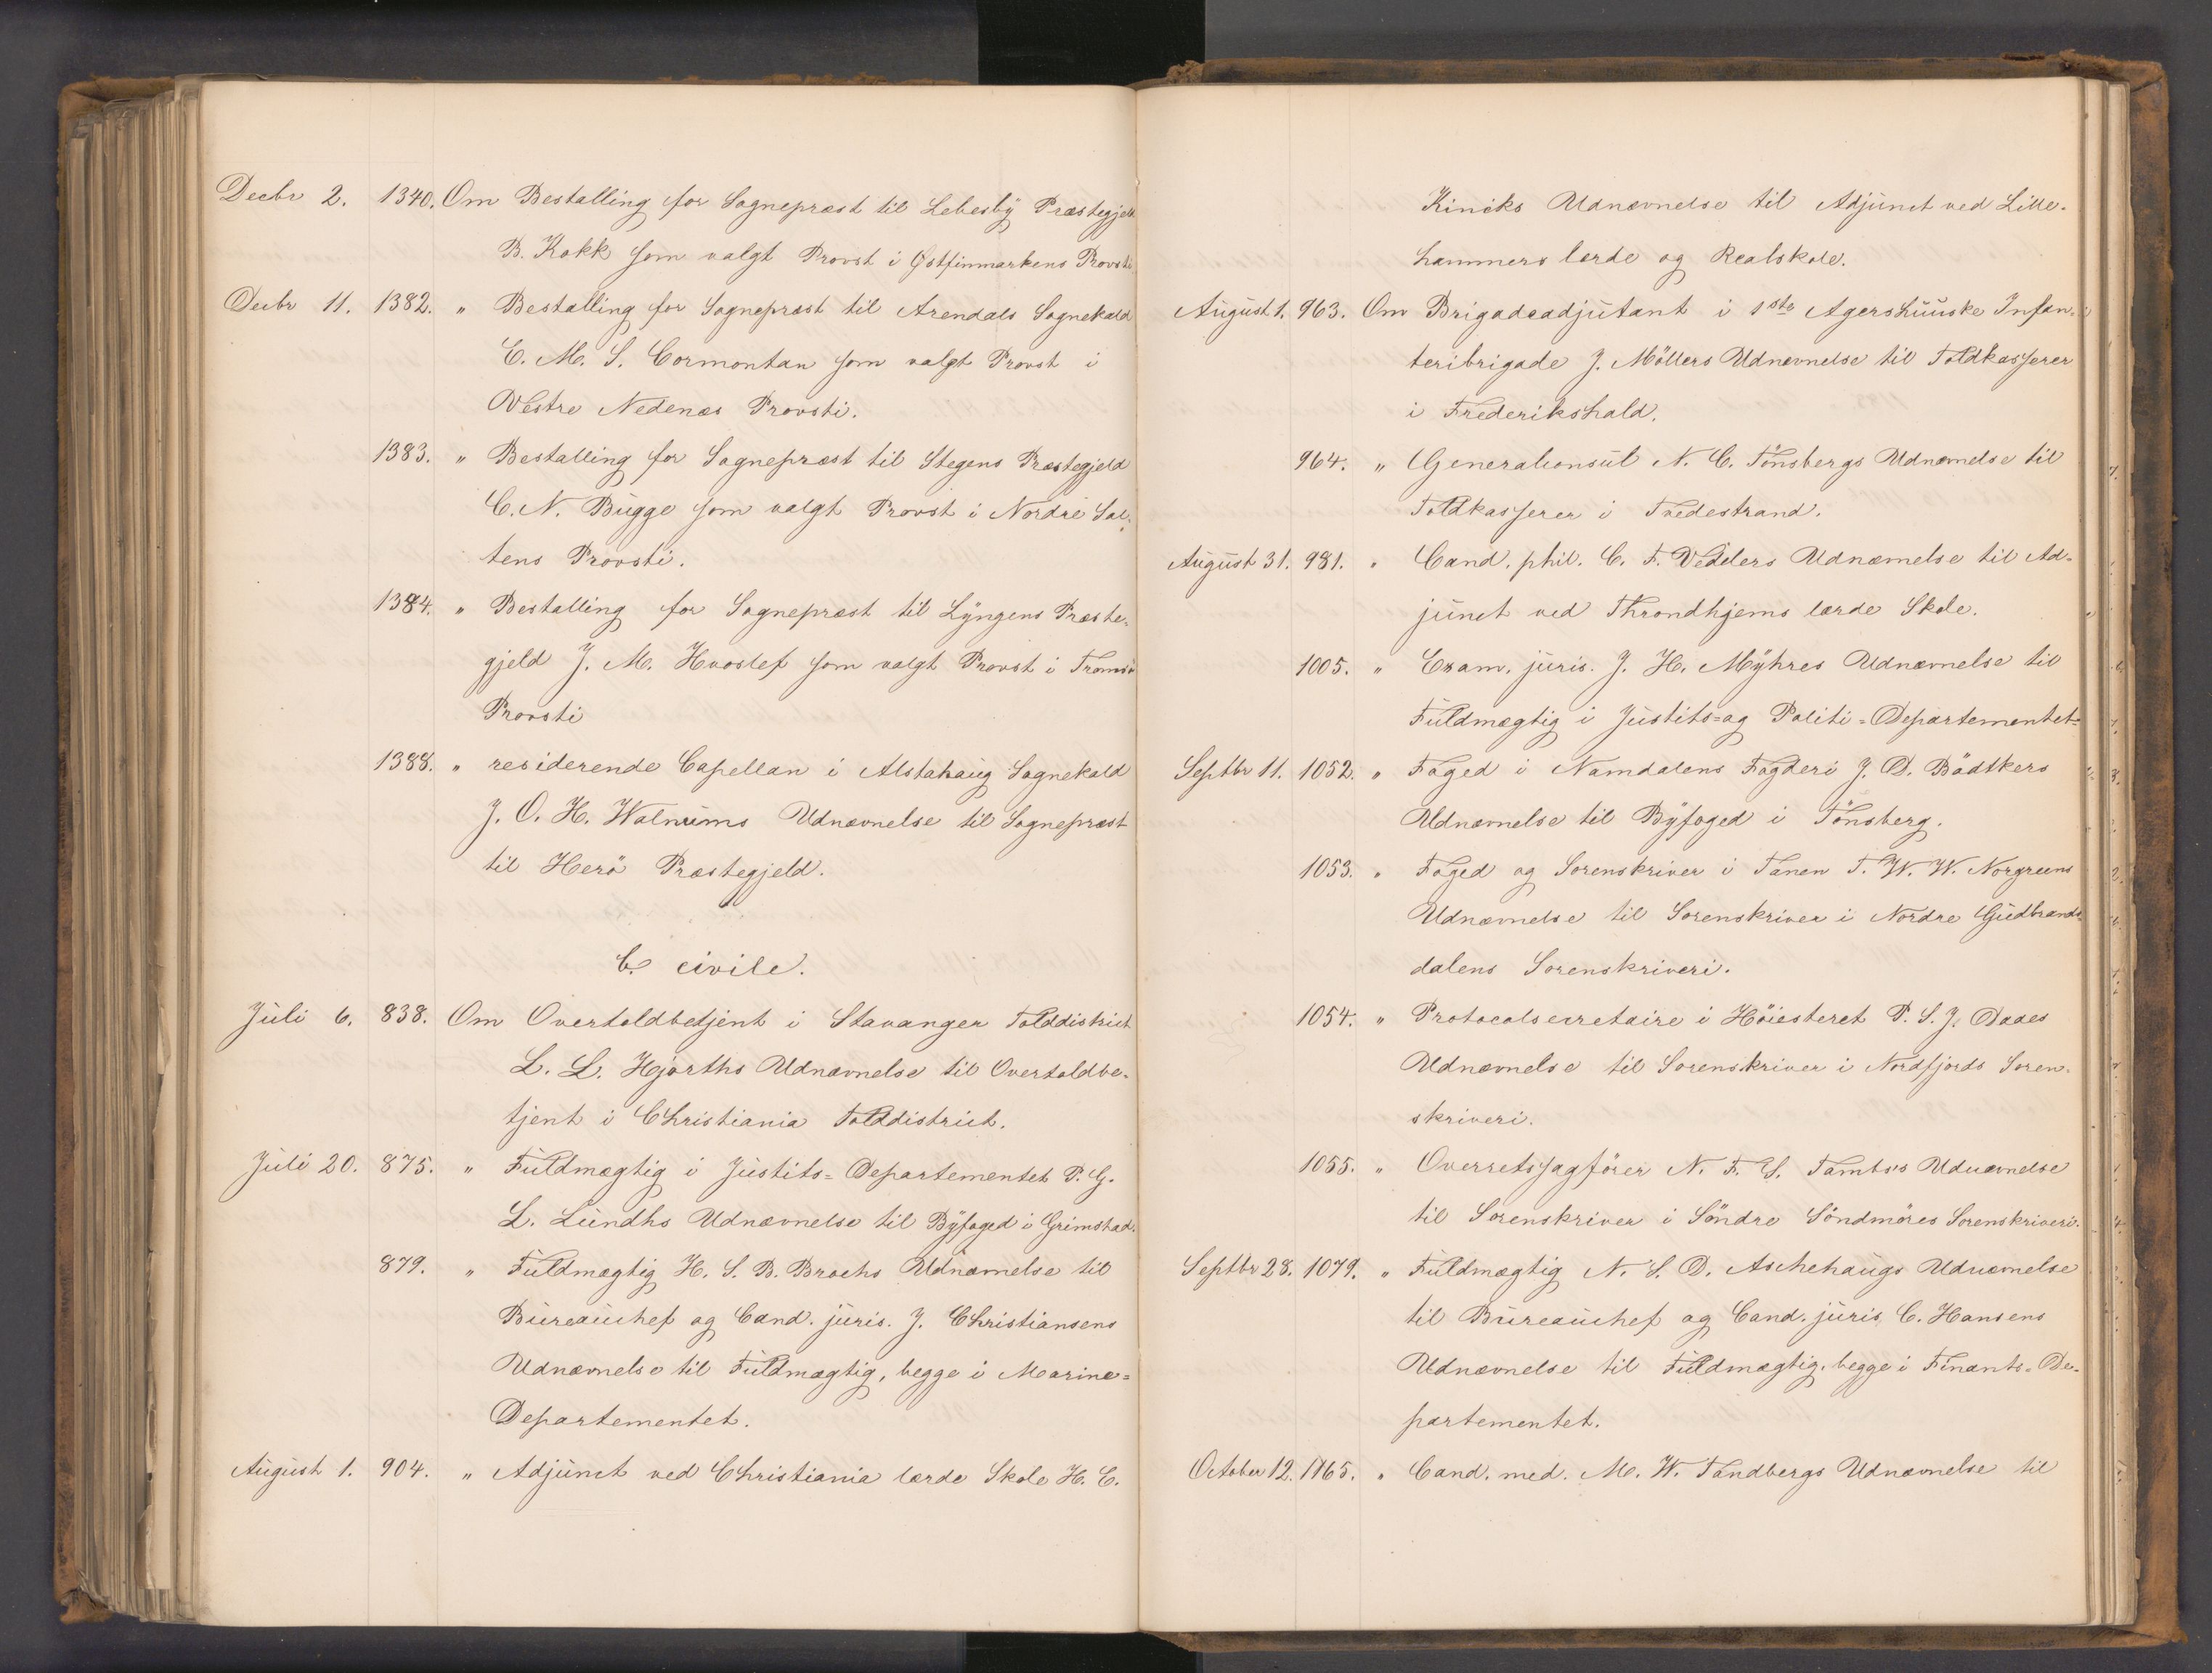 Decbr 2. 1340. Om Bestalling for Sognepræst til Lebesby Præstegjeld
B. Kokk som valgt Provst i Østfinmarkens Provsti
Decbr 11. 1382. " Bestalling for Sognepræst til Arendals Sognekald
C. M. S. Cormontan som valgt Provst i
Vestre Nedenæs Provsti.
1383. " Bestalling for Sognepræst til Stegens Præstegjeld
C. N. Bugge som valgt Provst i Nordre Sal-
tens Provsti.
1384. " Bestalling for Sognepræst til Lyngens Præste-
gjeld J. M. Hvoslef som valgt Provst i Tromsö
Provsti
1388. " residerende Capellan i Alstahaug Sognekald
J. O. H. Walnums Udnævnelse til Sognepræst
til Herö Præstegjeld.
C. civile.
Juli 6. 838. Om Overtoldbetjent i Stavanger Tolddistrict
L. L. Hjorths Udnævnelse til Overtoldbe-
tjent i Christiania Tolddistrict.
Juli 20. 875. " Fuldmægtig i Justits-Departementet P. G.
L. Lundhs Udnævnelse til Byfoged i Grimstad.
879. " Fuldmægtig H. S. B. Brochs Udnævnelse til
Bureauchef og Cand. juris. J. Christiansens
Udnævnelse til Fuldmægtig, begge i Marine-
Departementet.
August 1. 904. " Adjunct ved Christiania lærde Skole H. C.
Kincks Udnævnelse til Adjunct ved Lille-
hammers lærde og Realskole.
August 1. 963. Om Brigadeadjutant i 1ste Agershuuske Infan-
teribrigade J. Möllers Udnævnelse til Toldkasserer
i Frederikshald.
964. " Generalconsul N. C. Tönsbergs Udnævnelse til
Toldkasserer i Tvedestrand.
August 31. 981. " Cand. phil. C. F. Vedelers Udnævnelse til Ad-
junct ved Throndhjems lærde Skole.
1005. " Exam. juris. J. H. Myhres Udnævnelse til
Fuldmægtig i Justits- og Politi-Departementet
Septbr 11. 1052. " Foged i Namdalens Fogderi J. D. Bödtkers
Udnævnelse til Byfoged i Tönsberg.
1053. " Foged og Sorenskriver i Tanen T. W. W. Norgreens
Udnævnelse til Sorenskriver i Nordre Gudbrands-
dalens Sorenskriveri.
1054. " Protocolsecretaire i Höiesteret P. S. J. Daaes
Udnævnelse til Sorenskriver i Nordfjords Soren-
skriveri.
1055. " Overretssagförer N. F. S. Tambs's Udnævnelse
til Sorenskriver i Söndre Söndmöres Sorenskriveri.
Septbr 28. 1079. " Fuldmægtig N. S. D. Aschehaugs Udnævnelse
til Bureauchef og Cand. juris. C. Hansens
Udnævnelse til Fuldmægtig, begge i Finants-De-
partementet.
October 12. 1165. " Cand. med. M. W. Tandbergs Udnævnelse til